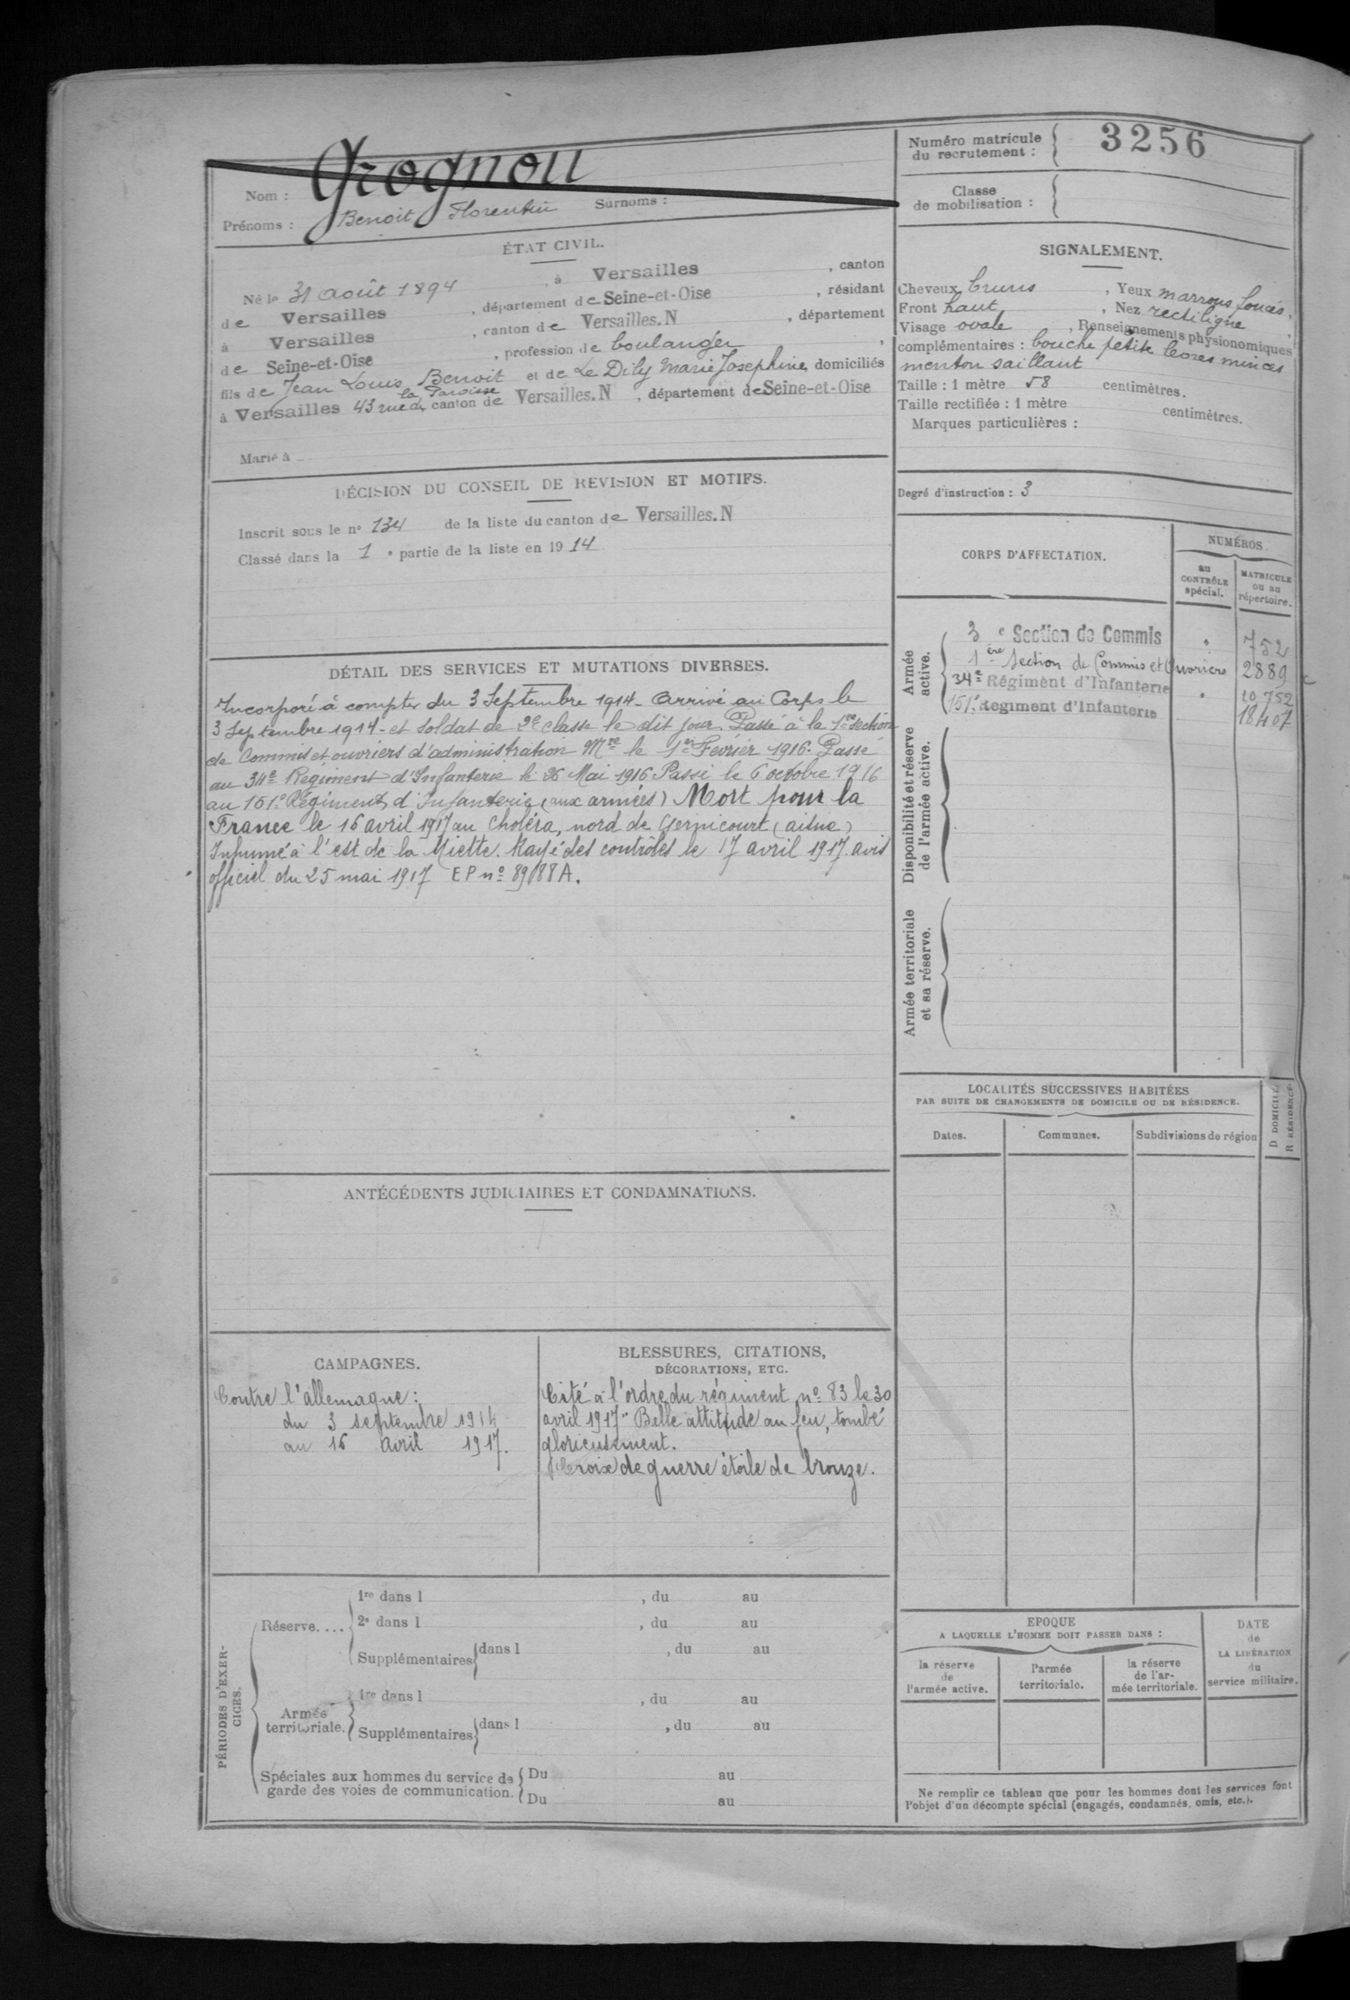 Nom : Grognou
Prénoms : Benoit Florentin Surnoms :
ÉTAT CIVIL.
Né le 31 août 1894, à Versailles, canton
de Versailles, département de Seine-et-Oise, résidant
à Versailles, canton de Versailles.N, département
de Seine-et-Oise, profession de boulanger,
fils de Jean Louis Benoit et de Le Dily Marie Josephine, domiciliés
la Paroisse
à Versailles 43 rue de canton de Versailles.N, département de Seine-et-Oise
Marié à
DÉCISION DU CONSEIL DE REVISION ET MOTIFS.
Inscrit sous le n° 134 de la liste du canton de Versailles.N
Classé dans la 1e partie de la liste en 1914
DÉTAIL DES SERVICES ET MUTATIONS DIVERSES.
Incorporé à compter du 3 Septembre 1914 - Arrivé au Corps le
3 Septembre 1914 - et soldat de 2e classe le dit jour. Passé à la 1ère section
de Commis et ouvriers d'administration Mre le 1er Février 1916. Passé
au 34e Régiment d'Infanterie le 26 Mai 1916 Passé le 6 octobre 1916
au 151e Régiment d'Infanterie (aux armées) Mort pour la
France le 16 avril 1917 au Choléra, nord de Gernicourt (aisne)
Inhumé à l'est de la Miette. Rayé des contrôles le 17 avril 1917 avis
officiel du 25 mai 1917 EP n° 89188A.
ANTÉCÉDENTS JUDICIAIRES ET CONDAMNATIONS.
CAMPAGNES.
Contre l'allemagne :
du 3 septembre 1914
au 16 avril 1917.
BLESSURES, CITATIONS,
DÉCORATIONS, ETC.
Cité à l'ordre du régiment n° 83 le 30
avril 1917 " Belle attitude au feu, tombé
glorieusement.
Croix de guerre étoile de bronze.
PÉRIODES D'EXER-
CICES.
Réserve....
1re dans l , du au
2e dans l , du au
Supplémentaires dans l , du au
Armée
territoriale.
1re dans l , du au
Supplémentaires dans l , du au
Spéciales aux hommes du service de
garde des voies de communication.
Du au
Du au
Numéro matricule
du recrutement : 3256
Classe
de mobilisation :
SIGNALEMENT.
Cheveux bruns, Yeux marrons foncés,
Front haut, Nez rectiligne,
Visage ovale, Renseignements physionomiques
complémentaires : bouche petite levres minces
menton saillant
Taille : 1 mètre 58 centimètres.
Taille rectifiée : 1 mètre centimètres.
Marques particulières :
Degré d'instruction : 3
CORPS D'AFFECTATION.
NUMÉROS
au
CONTRÔLE
spécial.
MATRICULE
ou au
répertoire.
Armée
active.
3e Section de Commis " 752
1ère Section de Commis et Ouvriers 2889
34e Régiment d'Infanterie " 10752
151e Régiment d'Infanterie 18407
Disponibilité et réserve
de l'armée active.
Armée territoriale
et sa réserve.
LOCALITÉS SUCCESSIVES HABITÉES
PAR SUITE DE CHANGEMENTS DE DOMICILE OU DE RÉSIDENCE.
Dates.
Communes.
Subdivisions de région
D DOMICILE
R RÉSIDENCE
EPOQUE
A LAQUELLE L'HOMME DOIT PASSER DANS :
la réserve
de
l'armée active.
l'armée
territoriale.
la réserve
de l'ar-
mée territoriale.
DATE
de
LA LIBÉRATION
du
service militaire.
Ne remplir ce tableau que pour les hommes dont les services font
l'objet d'un décompte spécial (engagés, condamnés, omis, etc.).